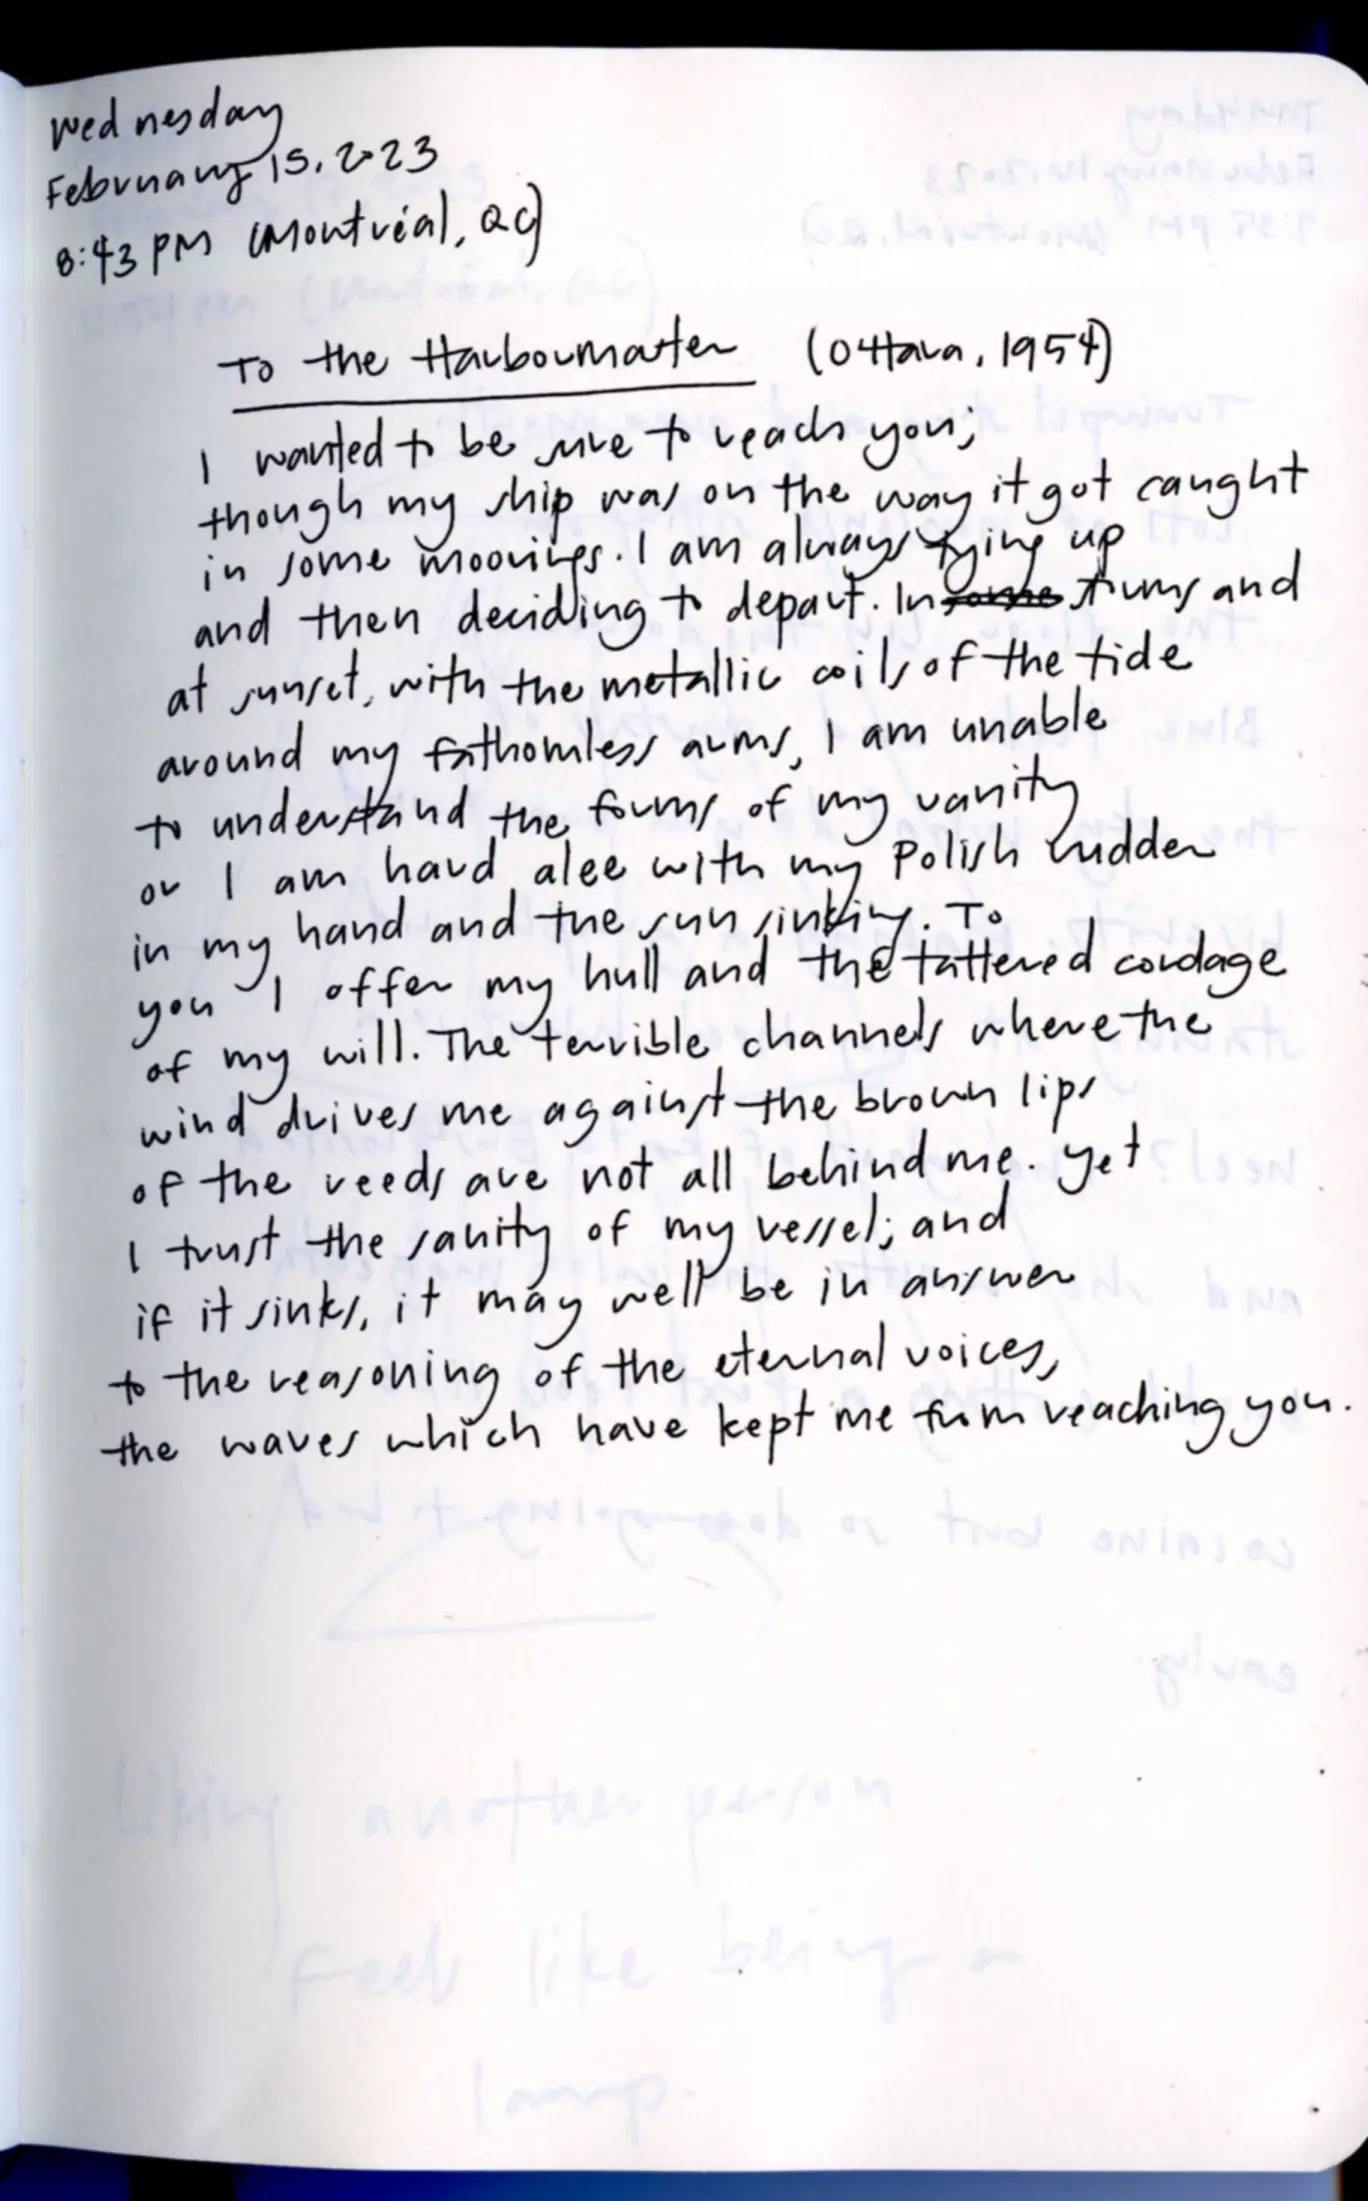 Wednesday
February 15, 2023
8:43 PM (Montréal, QC)
To the Harbourmaster (O'Hara, 1954)
I wanted to be sure to reach you;
though my ship was on the way it got caught
in some moorings. I am always tying up
and then deciding to depart. In some storms and
at sunset, with the metallic coils of the tide
around my fathomless arms, I am unable
to understand the forms of my vanity
or I am hard alee with my Polish rudder
in my hand and the sun sinking. To
you I offer my hull and the tattered cordage
of my will. The terrible channels where the
wind drives me against the brown lips
of the reeds are not all behind me. Yet
I trust the sanity of my vessel; and
if it sinks, it may well be in answer
to the reasoning of the eternal voices,
the waves which have kept me from reaching you.
Liking another person
Feel like being a
lamp.